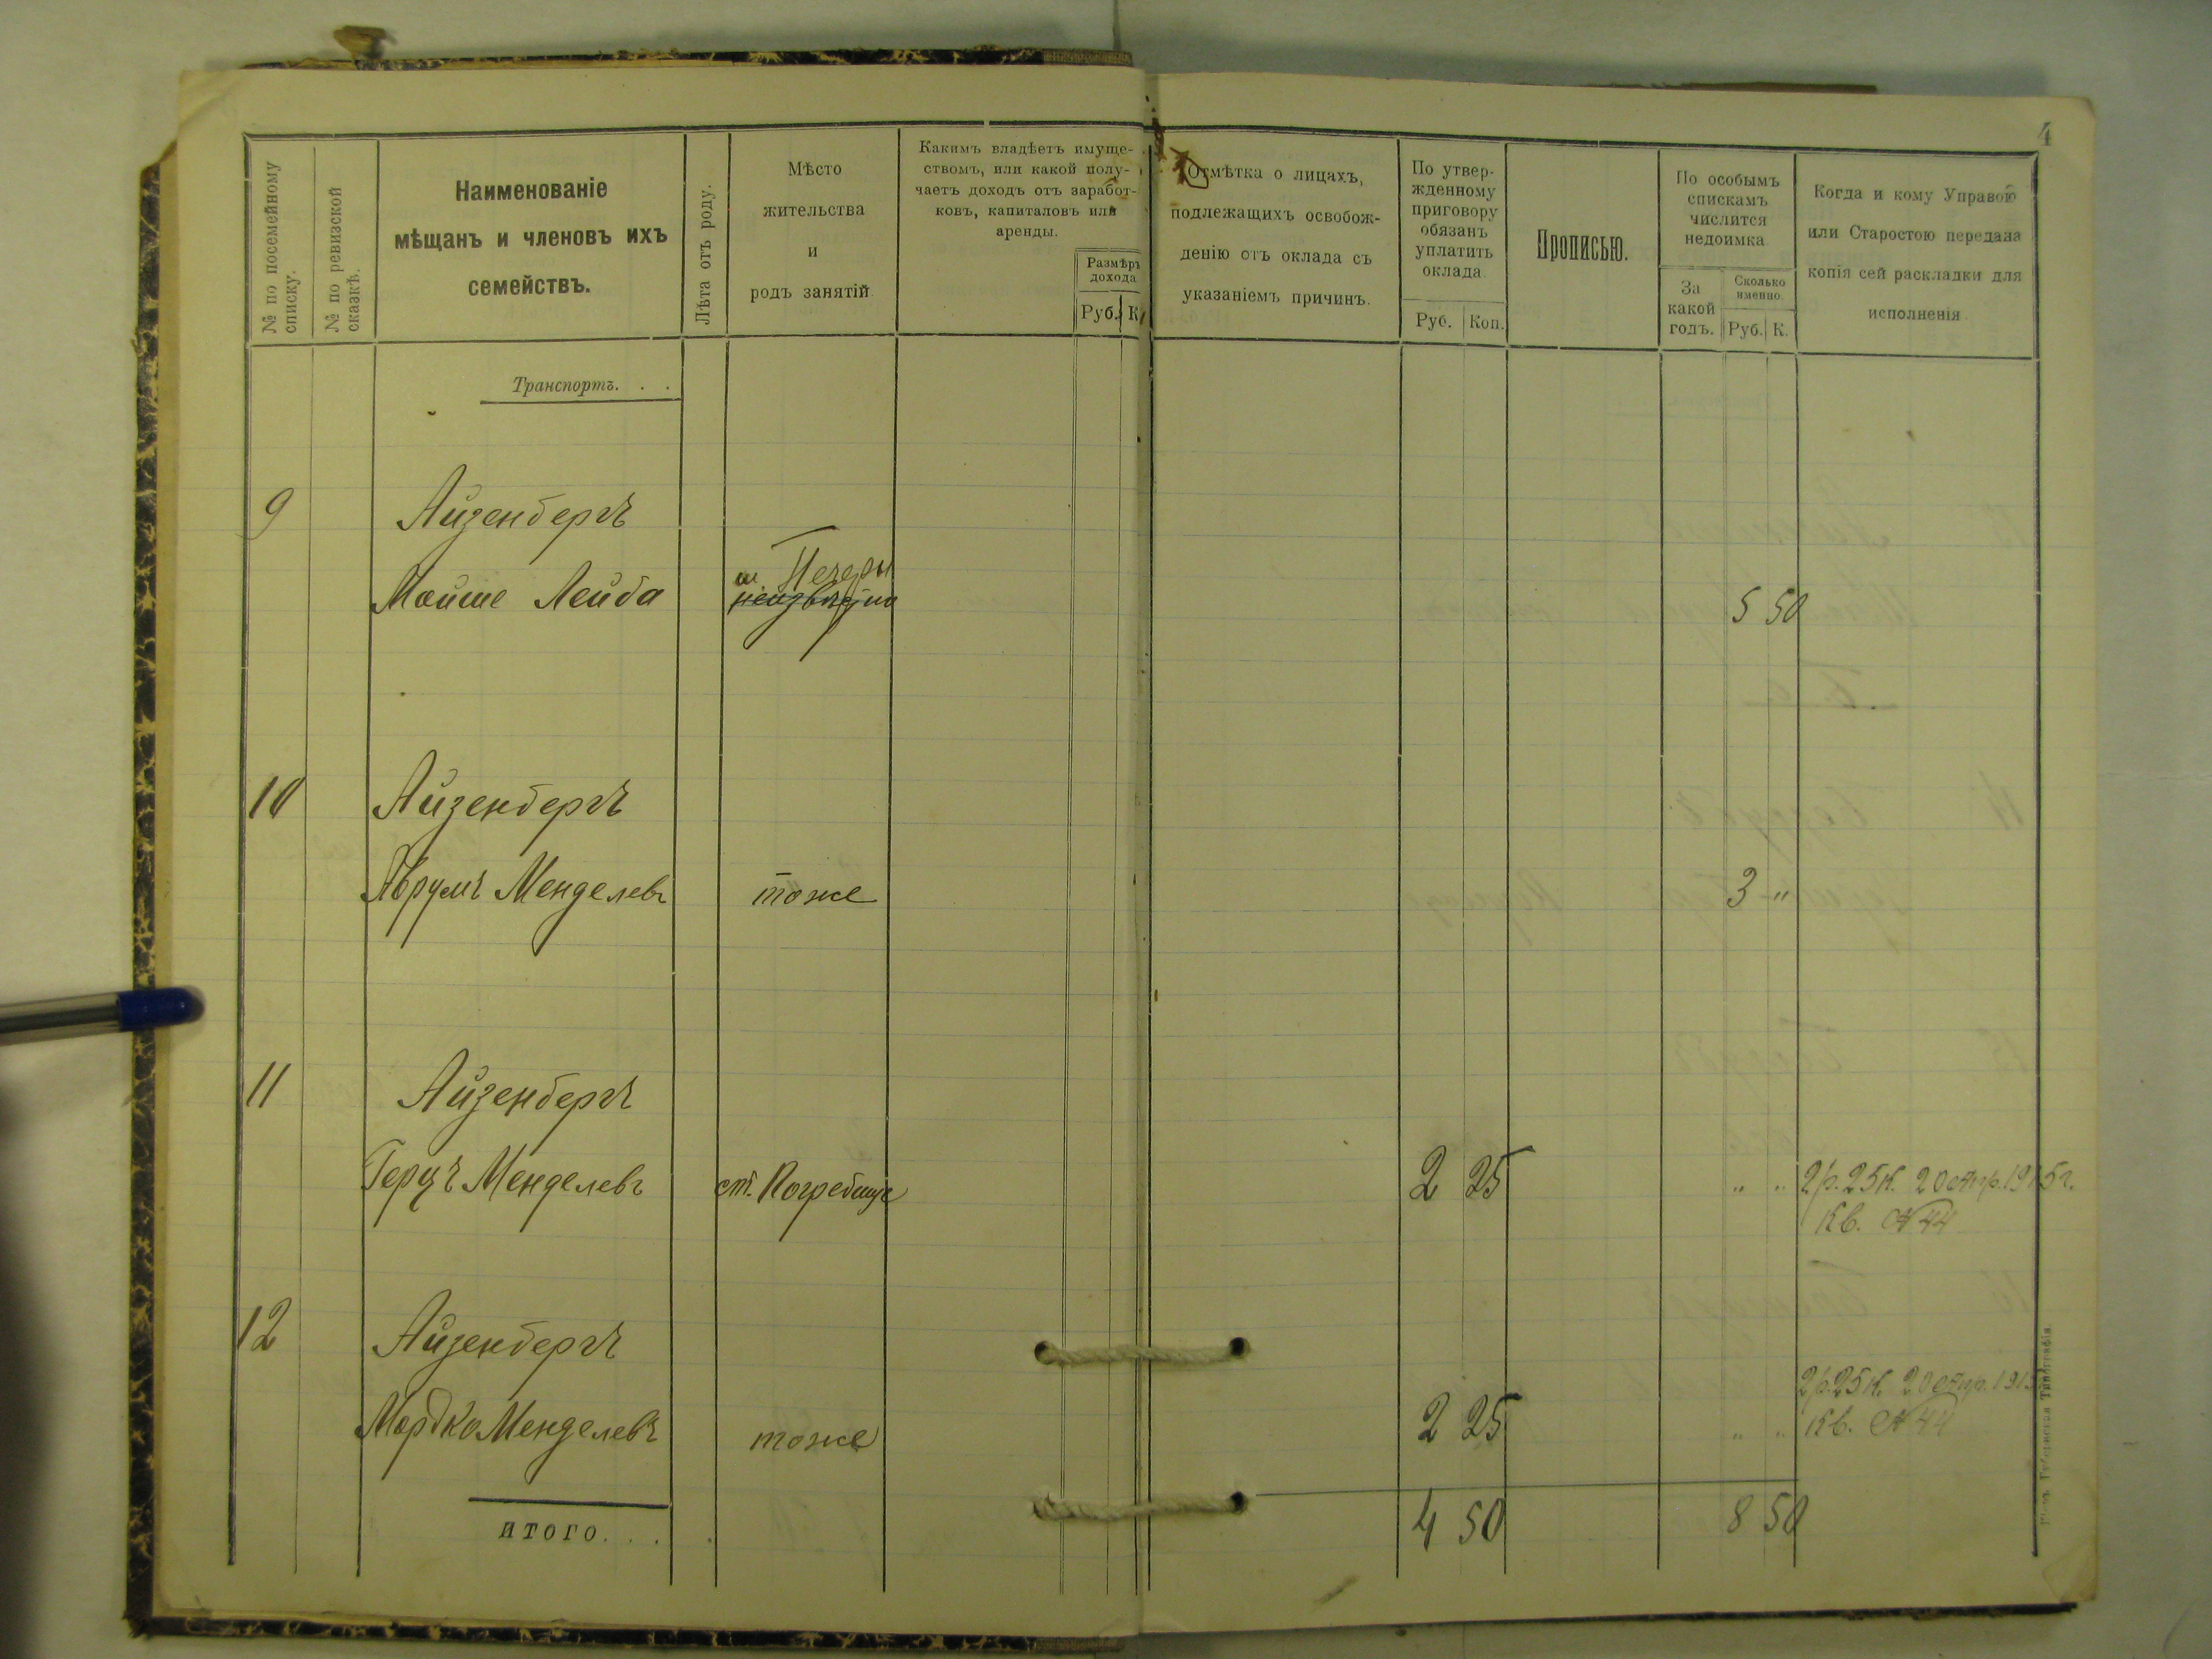 4
№ по посемейному списку.
№ по ревизской сказкѣ.
Наименованіе
мѣщанъ и членовъ ихъ
семействъ.
Лѣта отъ роду.
Мѣсто
жительства
и
родъ занятій
Какимъ владѣетъ имуще-
ствомъ, или какой полу-
чаетъ доходъ отъ заработ-
ковъ, капиталовъ или
аренды.
Размѣръ
дохода
Руб. К.
Отмѣтка о лицахъ,
подлежащихъ освобож-
денію отъ оклада съ
указаніемъ причинъ.
По утвер-
жденному
приговору
обязанъ
уплатить
оклада
Руб. Коп.
Прописью.
По особымъ
спискамъ
числится
недоимка
За
какой
годъ.
Сколько
именно.
Руб. К.
Когда и кому Управою
или Старостою передана
копія сей раскладки для
исполненія
Транспортъ. . .
9 Айзенбергъ
м. Печеры
Мойше Лейба неизвѣстно 5 50
10 Айзенбергъ
Аврумъ Менделевъ тоже 3 "
11 Айзенбергъ
Герцъ Менделевъ ст. Погребище 2 25 " " 2р. 25к. 2 октр. 1915г.
Кв. № 44
12 Айзенбергъ
2р. 25к. 2 октр. 1915
Мордко Менделевъ тоже 2 25 " " Кв. № 44
итого. . . 4 50 8 50